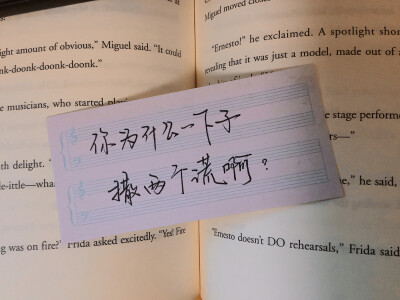 Miguel moved close
ght amount of obvious,” Miguel said. “It could
nk-doonk-doonk-doonk.”
“Ernesto!” he exclaimed. A spotlight shor
revealing that it was just a model, made out of
e musicians, who started
你为什么一下子
撒两个谎啊？
e stage performe
rs—”
th delight. “
-ittle—wha
he,” he said,
g was on fire?” Frida asked excitedly. “Yes! Fire
“Ernesto doesn’t DO rehearsals,” Frida said